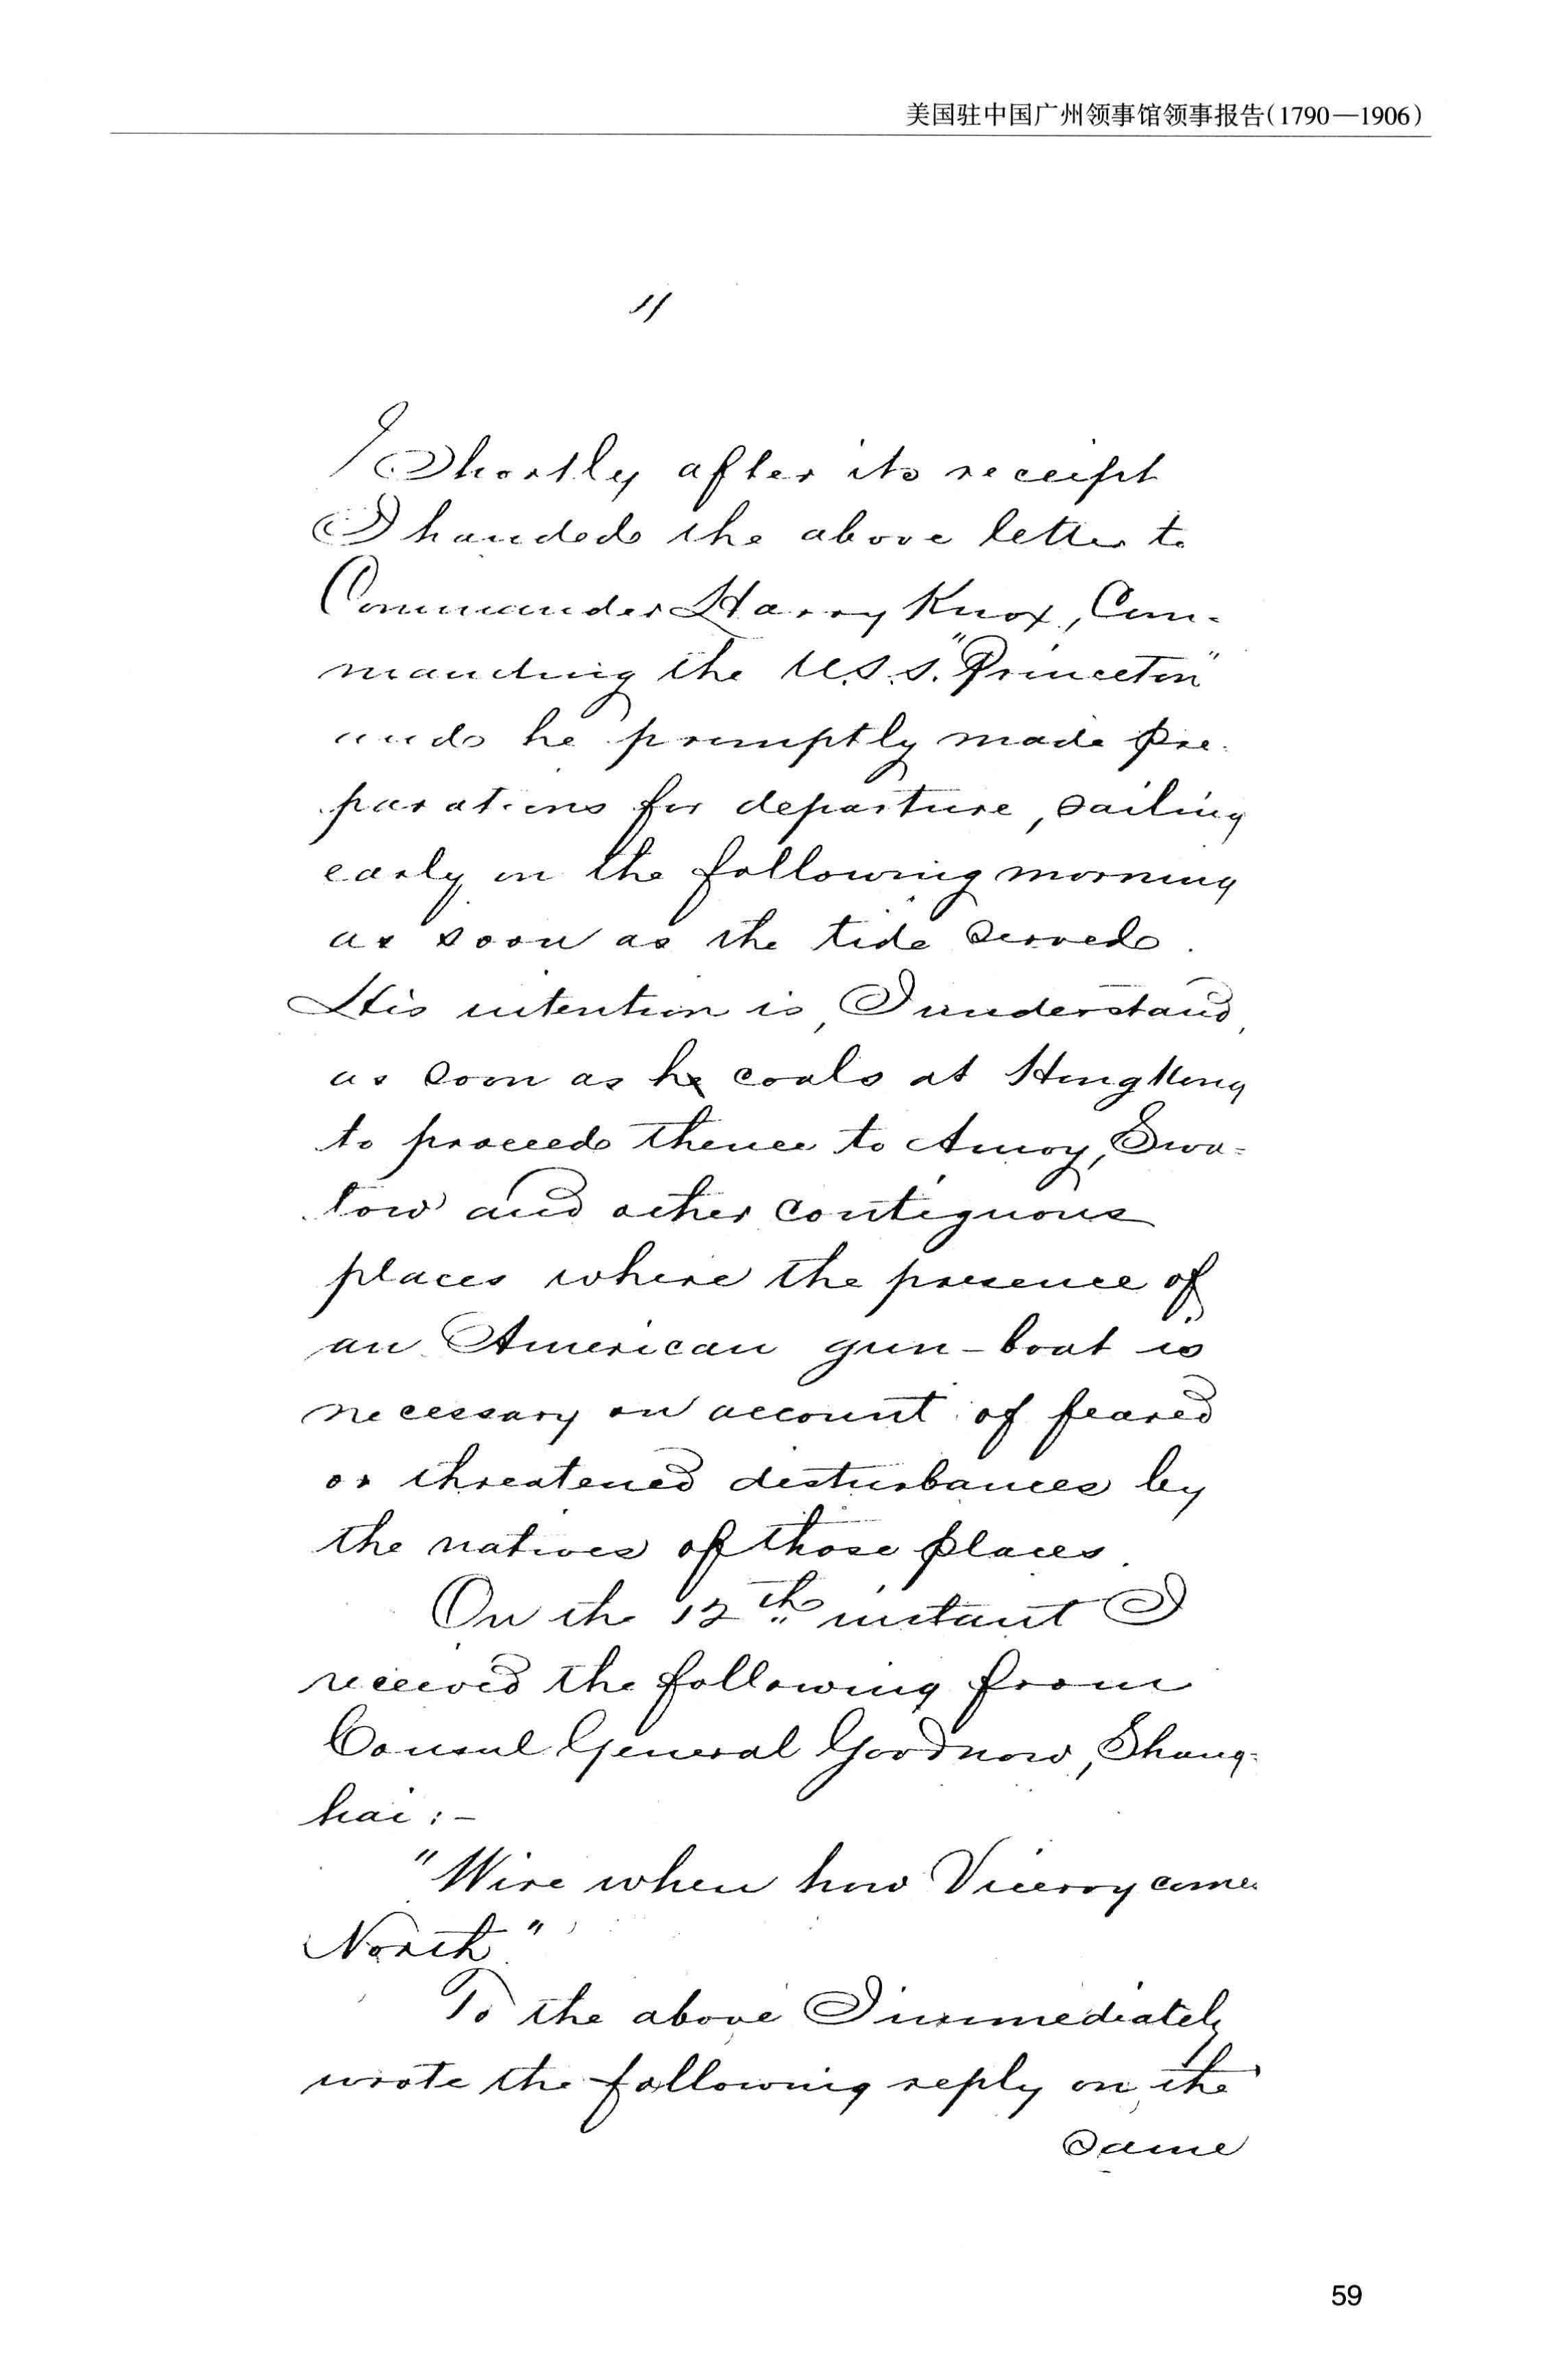 美国驻中国广州领事馆领事报告(1790—1906)
11
Shortly after its receipt
I handed the above letter to
Commander Harry Knox, Com-
manding the U.S.S. "Princeton"
and he promptly made pre-
parations for departure, sailing
early on the following morning
as soon as the tide served.
His intention is, I understand,
as soon as he coals at Hong Kong
to proceed thence to Amoy, Swa-
tow and other contiguous
places where the presence of
an American gun-boat is
necessary on account of feared
or threatened disturbances by
the natives of those places.
On the 12th instant I
received the following from
Consul General Goodnow, Shang-
hai:-
"Wire when how Viceroy comes
North"
To the above I immediately
wrote the following reply on the
same
59